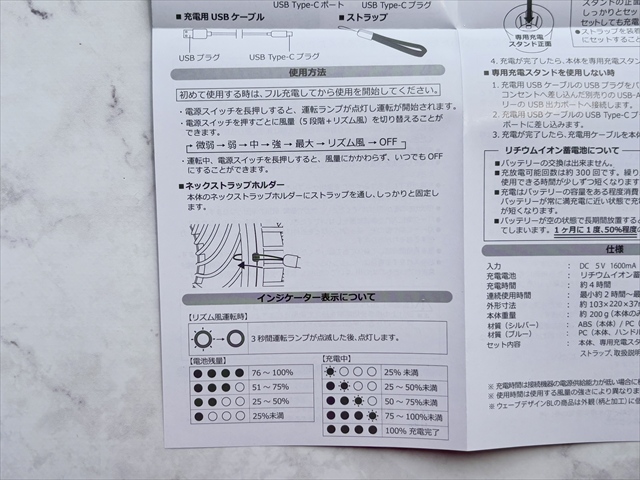 USB Type-C ポート　USB Type-C プラグ
■ 充電用 USB ケーブル
■ ストラップ
USB プラグ　USB Type-C プラグ
使用方法
初めて使用する時は、フル充電してから使用を開始してください。
・電源スイッチを長押しすると、運転ランプが点灯し運転が開始されます。
・電源スイッチを押すごとに風量（5 段階＋リズム風）を切り替えることが
できます。
→ 微弱 → 弱 → 中 → 強 → 最大 → リズム風 → OFF
・運転中、電源スイッチを長押しすると、風量にかかわらず、いつでも OFF
にすることができます。
■ ネックストラップホルダー
本体のネックストラップホルダーにストラップを通し、しっかりと固定し
ます。
インジケーター表示について
【リズム風運転時】
3 秒間運転ランプが点滅した後、点灯します。
【電池残量】
76 ～ 100%
51 ～ 75%
25 ～ 50%
25%未満
【充電中】
25% 未満
25 ～ 50%未満
50 ～ 75%未満
75 ～ 100%未満
100% 充電完了
スタンドの正面
しっかりとセット
セットしても充電
●ストラップを装着
にセットすること
専用充電
スタンド正面
4. 充電が完了したら、本体を専用充電スタン
■ 専用充電スタンドを使用しない時
1. 充電用 USB ケーブルの USB プラグを
コンセントへ差し込んだ別売りの USB-A
リーの USB 出力ポートへ接続します。
2. 充電用 USB ケーブルの USB Type-C プ
ポートに差し込みます。
3. 充電が完了したら、充電用ケーブルを本
リチウムイオン蓄電池について
■ バッテリーの交換は出来ません。
■ 充放電可能回数は約 300 回です。繰り
使用できる時間が少しずつ短くなります
■ 充電はバッテリーの容量をある程度消費
バッテリーが常に満充電に近い状態で充
が短くなります。
■ バッテリーが空の状態で長期間放置する
てしまいます。1 ヶ月に 1 度、50%程度の
仕様
入力　：　DC 5V 1600mA
充電電池　：　リチウムイオン蓄
充電時間　：　約 4 時間
連続使用時間　：　最小約 2 時間～最
外形寸法　：　約 103×220×37m
本体重量　：　約 200ｇ（本体のみ
材質（シルバー）　：　ABS（本体）/ PC（
材質（ブルー）　：　PC（本体、ハンド
セット内容　：　本体、専用充電スタ
ストラップ、取扱説明
※ 充電時間は接続機器の電源供給能力が低い場合に
※ 使用時間は使用する風量の強さにより異なりま
※ ウェーブデザインBLの商品は外観（柄と加工）に個